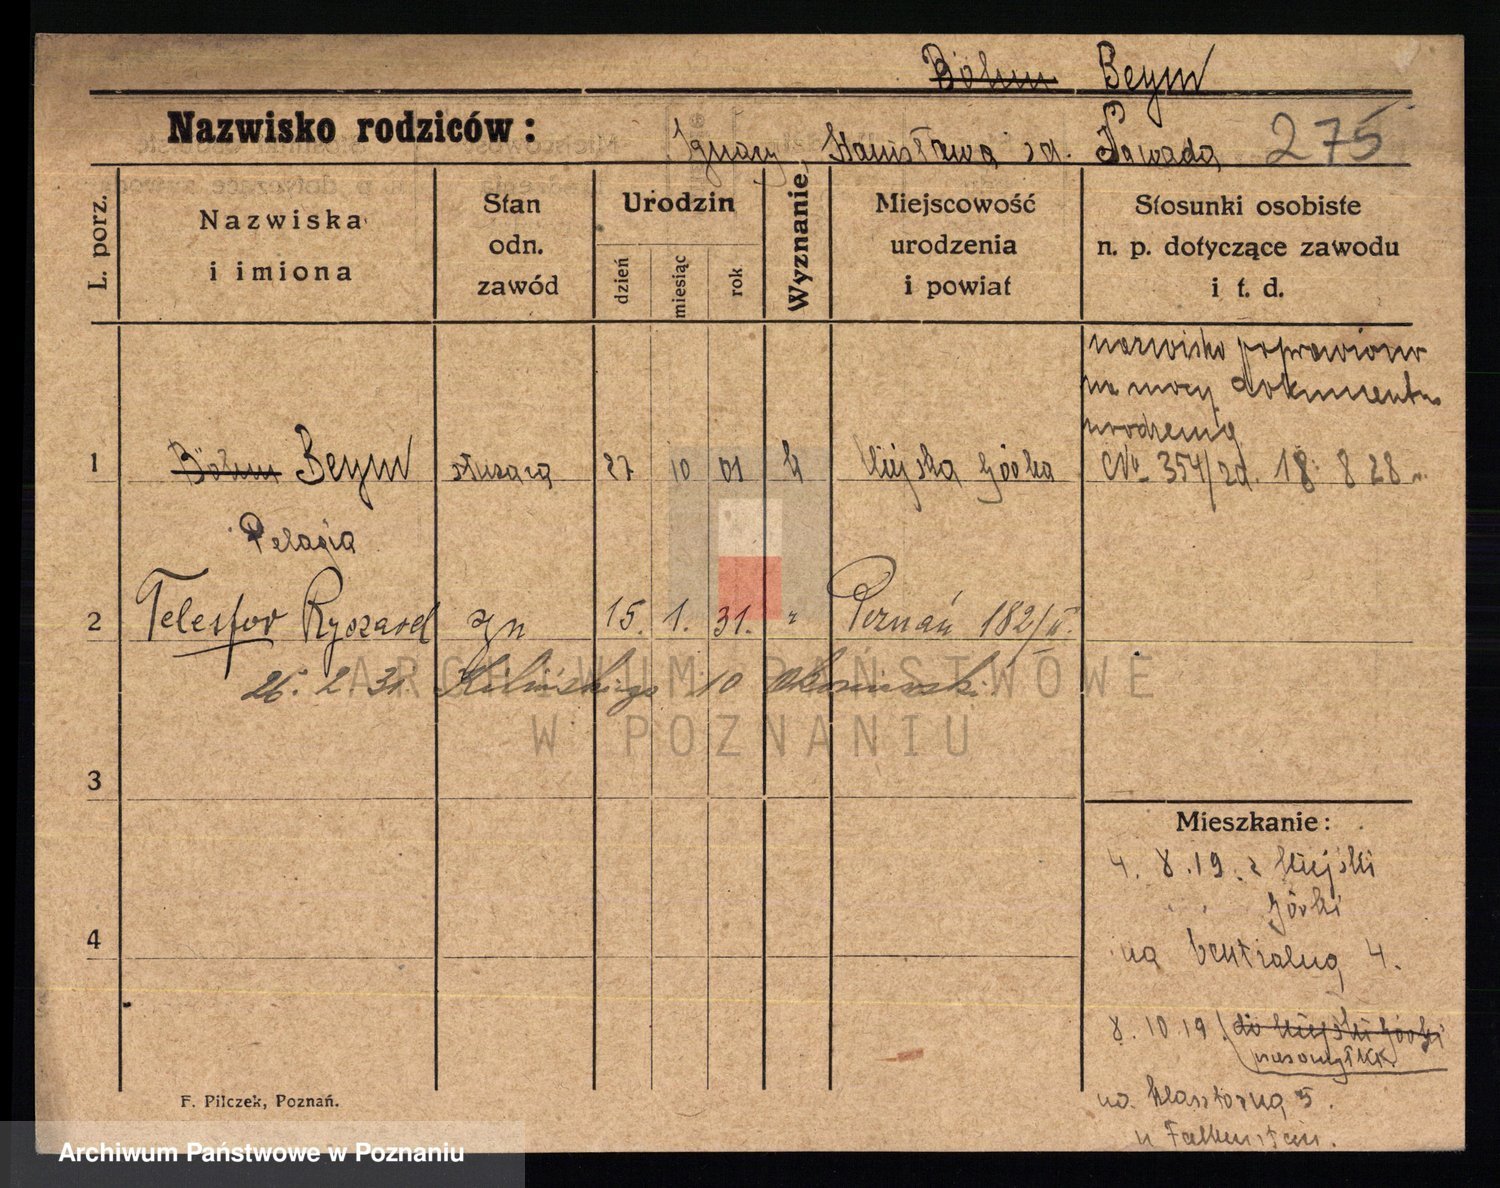 Böhm Beym
Nazwisko rodziców: Ignacy, Stanisława zd. Zawada 275
L. porz.
Nazwiska
i imiona
Stan
odn.
zawód
Urodzin
dzień
miesiąc
rok
Wyznanie
Miejscowość
urodzenia
i powiat
Stosunki osobiste
n. p. dotyczące zawodu
i t. d.
nazwisko poprawiono
na mocy dokumentu
urodzenia
1 Böhm Beym służąca 27 10 01 k Miejska Górka No 354/zd. 18 8 28 r.
Pelagia
2 Telesfor Ryszard syn 15. 1. 31. " Poznań 182/II.
26. 2. 31 Kilińskiego 10
ARCHIWUM PAŃSTWOWE
W POZNANIU
3
Mieszkanie:
4. 8. 19. z Miejski
Górki
4
na Centralną 4.
8. 10. 19. do Miejski Górki
na Klasztorną 5.
u Falkenstein.
F. Pilczek, Poznań.
Archiwum Państwowe w Poznaniu